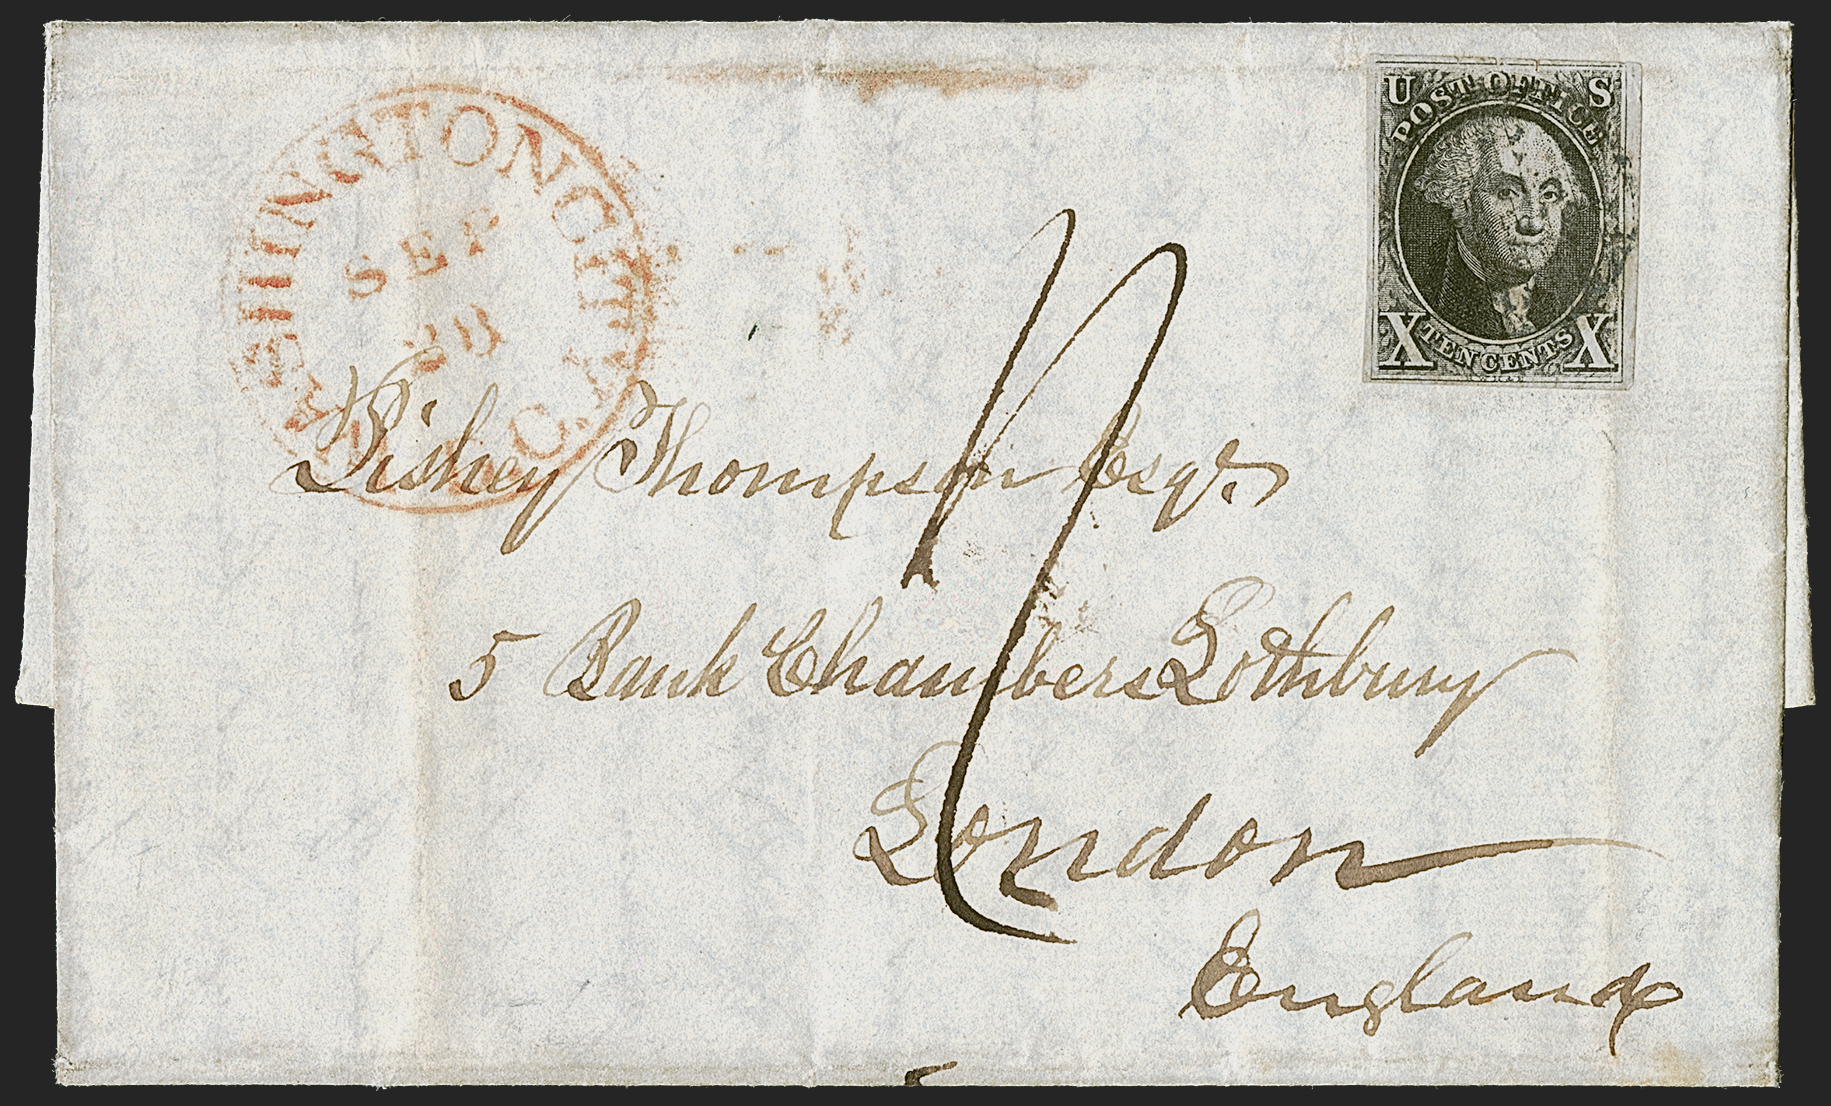 WASHINGTON CITY D.C.
SEP
U S
POST OFFICE
X TEN CENTS X
Pishey Thompson Esqr.
5 Bank Chambers Lothbury
London
England